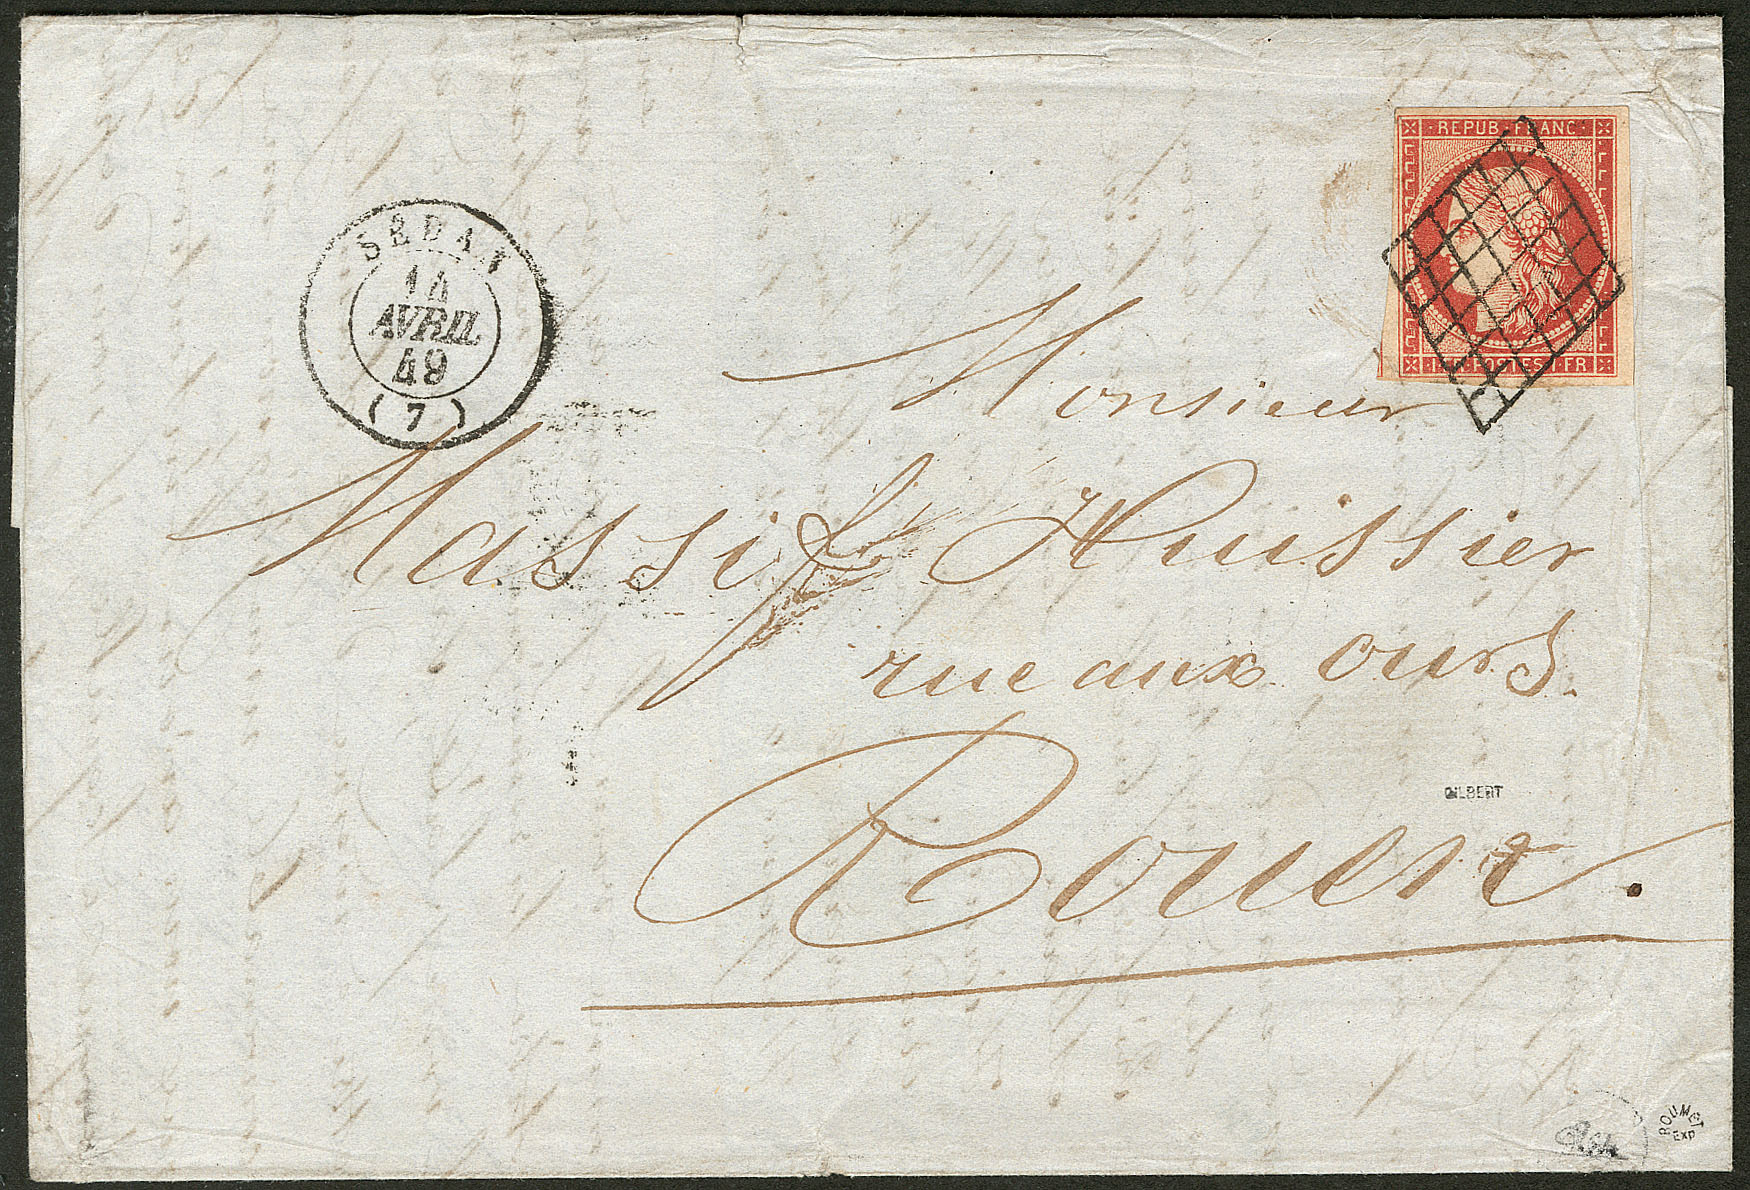 REPUB · FRANC ·
1 FR POSTES 1 FR
SEDAN
14
AVRIL
49
( 7 )
Monsieur
Massif Huissier
rue aux ours.
Rouen.
GILBERT
ROUMET
EXP